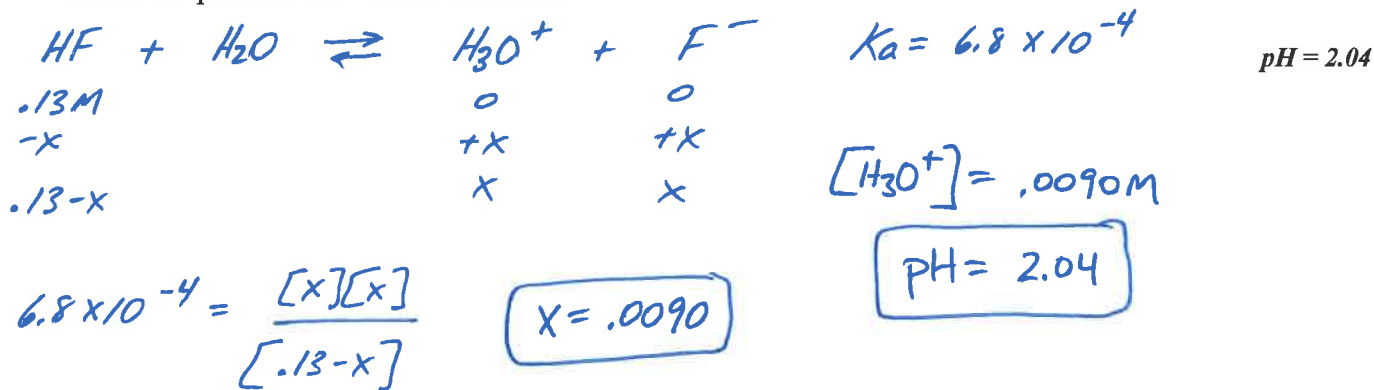 HF + H₂O ⇌ H₃O⁺ + F⁻ Ka = 6.8 x 10⁻⁴ pH = 2.04
.13M 0 0
-x +x +x
.13-x x x [H₃O⁺] = .0090M
6.8 x 10⁻⁴ = [x][x] / [.13-x] x = .0090 pH = 2.04